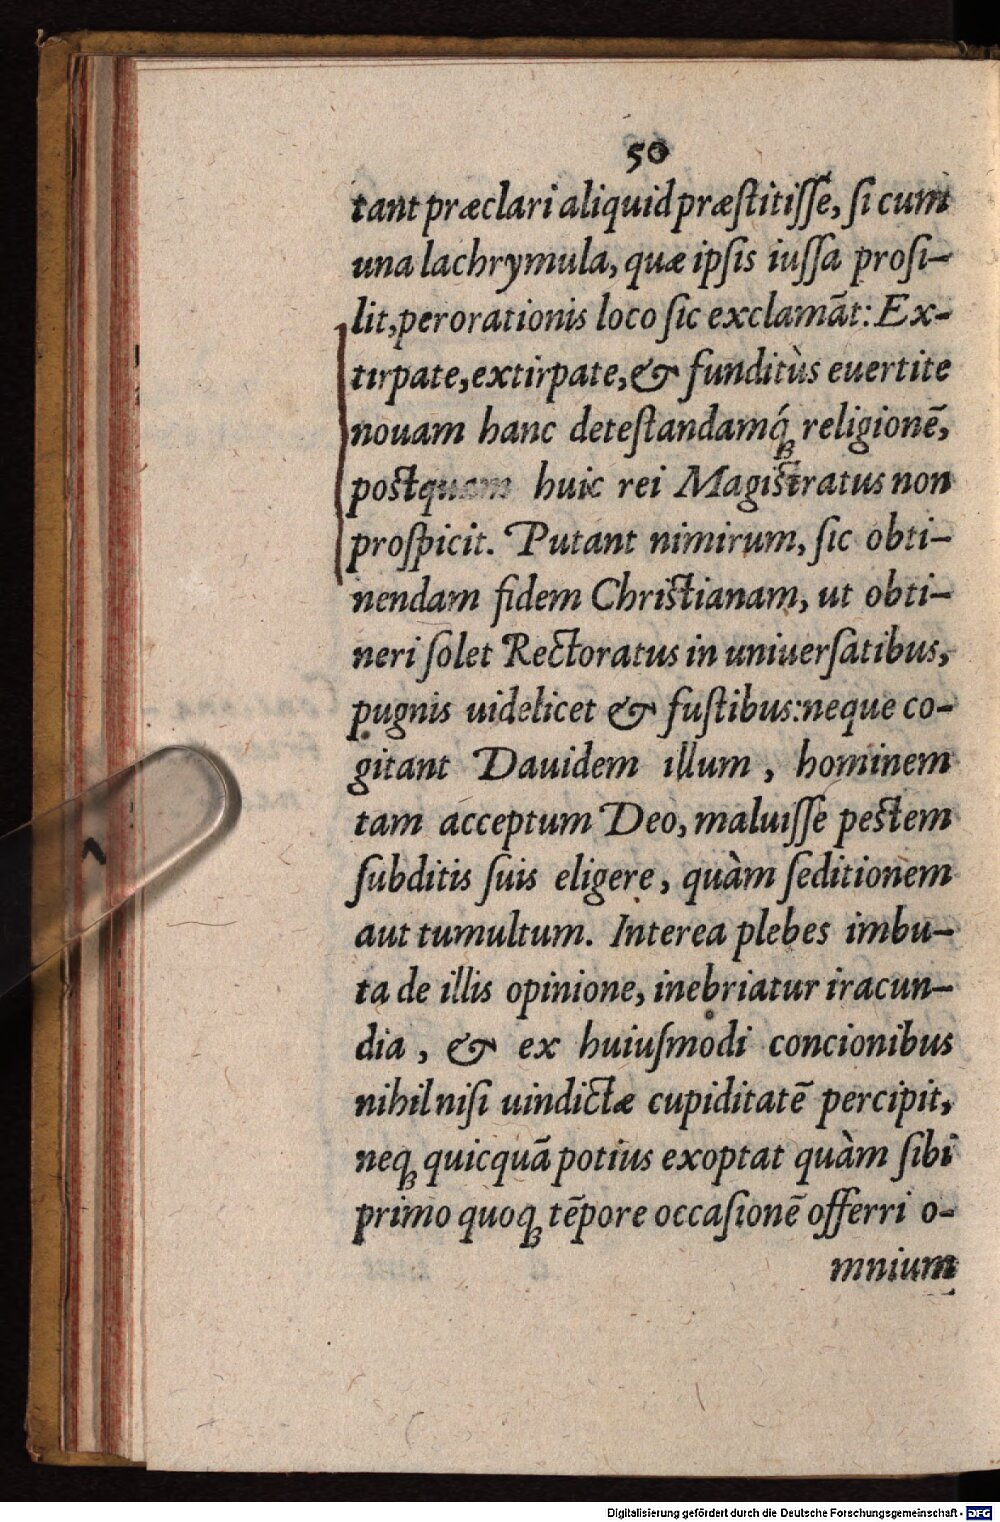 50
tant præclari aliquid præſtitiſſe, ſi cum
una lachrymula, quæ ipſis iuſſa proſi-
lit, perorationis loco ſic exclamāt: Ex-
tirpate, extirpate, & funditùs euertite
nouam hanc deteſtandamq́; religionē,
postquam huic rei Magistratus non
proſpicit. Putant nimirum, ſic obti-
nendam fidem Christianam, ut obti-
neri ſolet Rectoratus in uniuerſatibus,
pugnis uidelicet & fuſtibus: neque co-
gitant Dauidem illum, hominem
tam acceptum Deo, maluiſſe pestem
ſubditis ſuis eligere, quàm ſeditionem
aut tumultum. Interea plebes imbu-
ta de illis opinione, inebriatur iracun-
dia, & ex huiuſmodi concionibus
nihil niſi uindictæ cupiditatē percipit,
neq; quicquā potius exoptat quàm ſibi
primo quoq; tēpore occaſionē offerri o-
mnium
Digitalisierung gefördert durch die Deutsche Forschungsgemeinschaft - DFG